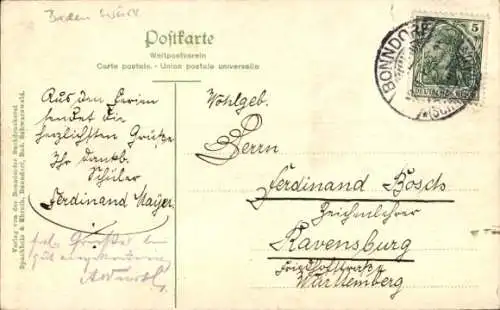 Baden
Postkarte
Weltpostverein
Carte postale. - Union postale universelle
BONNDORF
5
DEUTSCHES REICH
Aus den Ferien
sendet die
herzlichsten Grüße
Ihr dankb.
Schüler
Ferdinand Mayer.
Wohlgeb.
Herrn
Ferdinand Bosch
Zeichenlehrer
Ravensburg
Friedhofstraße
Württemberg
Grüße
gut angekommen
Verlag von der Bonndorfer Buchdruckerei
Spachholz & Ehrath, Bonndorf, Bad. Schwarzwald.